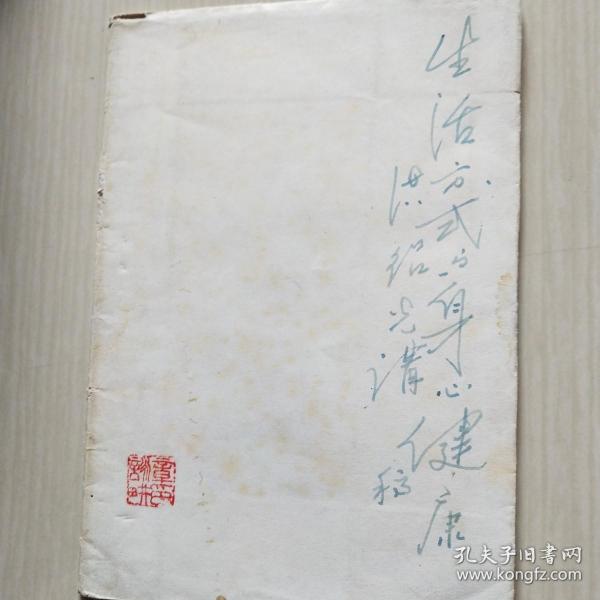 生活方式与身心健康
洪绍光講稿
孔夫子旧书网
www.kongfz.com